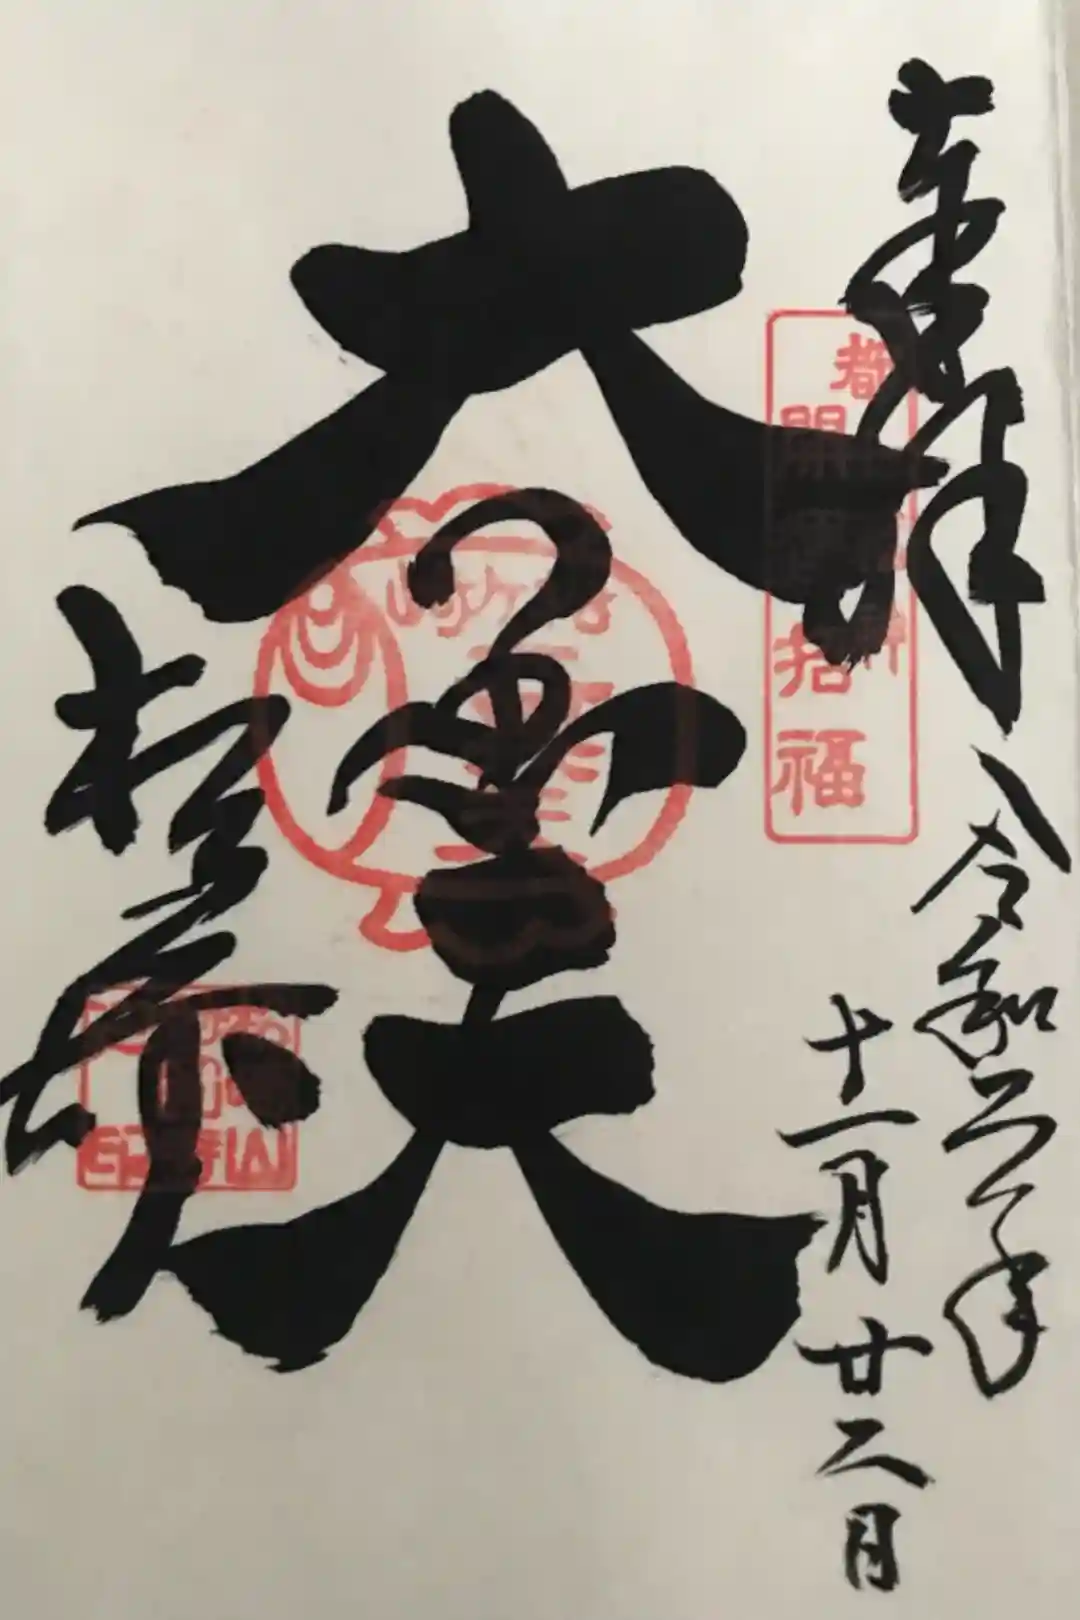 奉拝
令和二年
十一月廿二日
都七福神
開運招福
大黒天
松ヶ崎